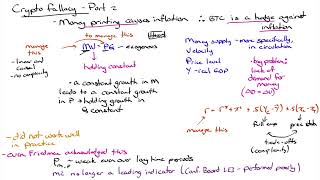 Crypto Fallacy - Part 2
- Money printing causes inflation ∴ BTC is a hedge against inflation
manage this
to manage this
MV = PQ - exogenous
holding constant
- linear and causal
- no complexity
- a constant growth in M
leads to a constant growth
in P holding growth in
Q constant
Money supply - more specifically,
in circulation
Velocity
Price level
Y - real GDP
big problem:
lack of
demand for
money
(AD=AD)
manage this
full emp
price stab
trade-offs
(complexity)
- did not work well
in practice
- even Friedman acknowledged this
- weak even over long time periods
no longer a leading indicator (Conf. Board LEI - performed poorly)